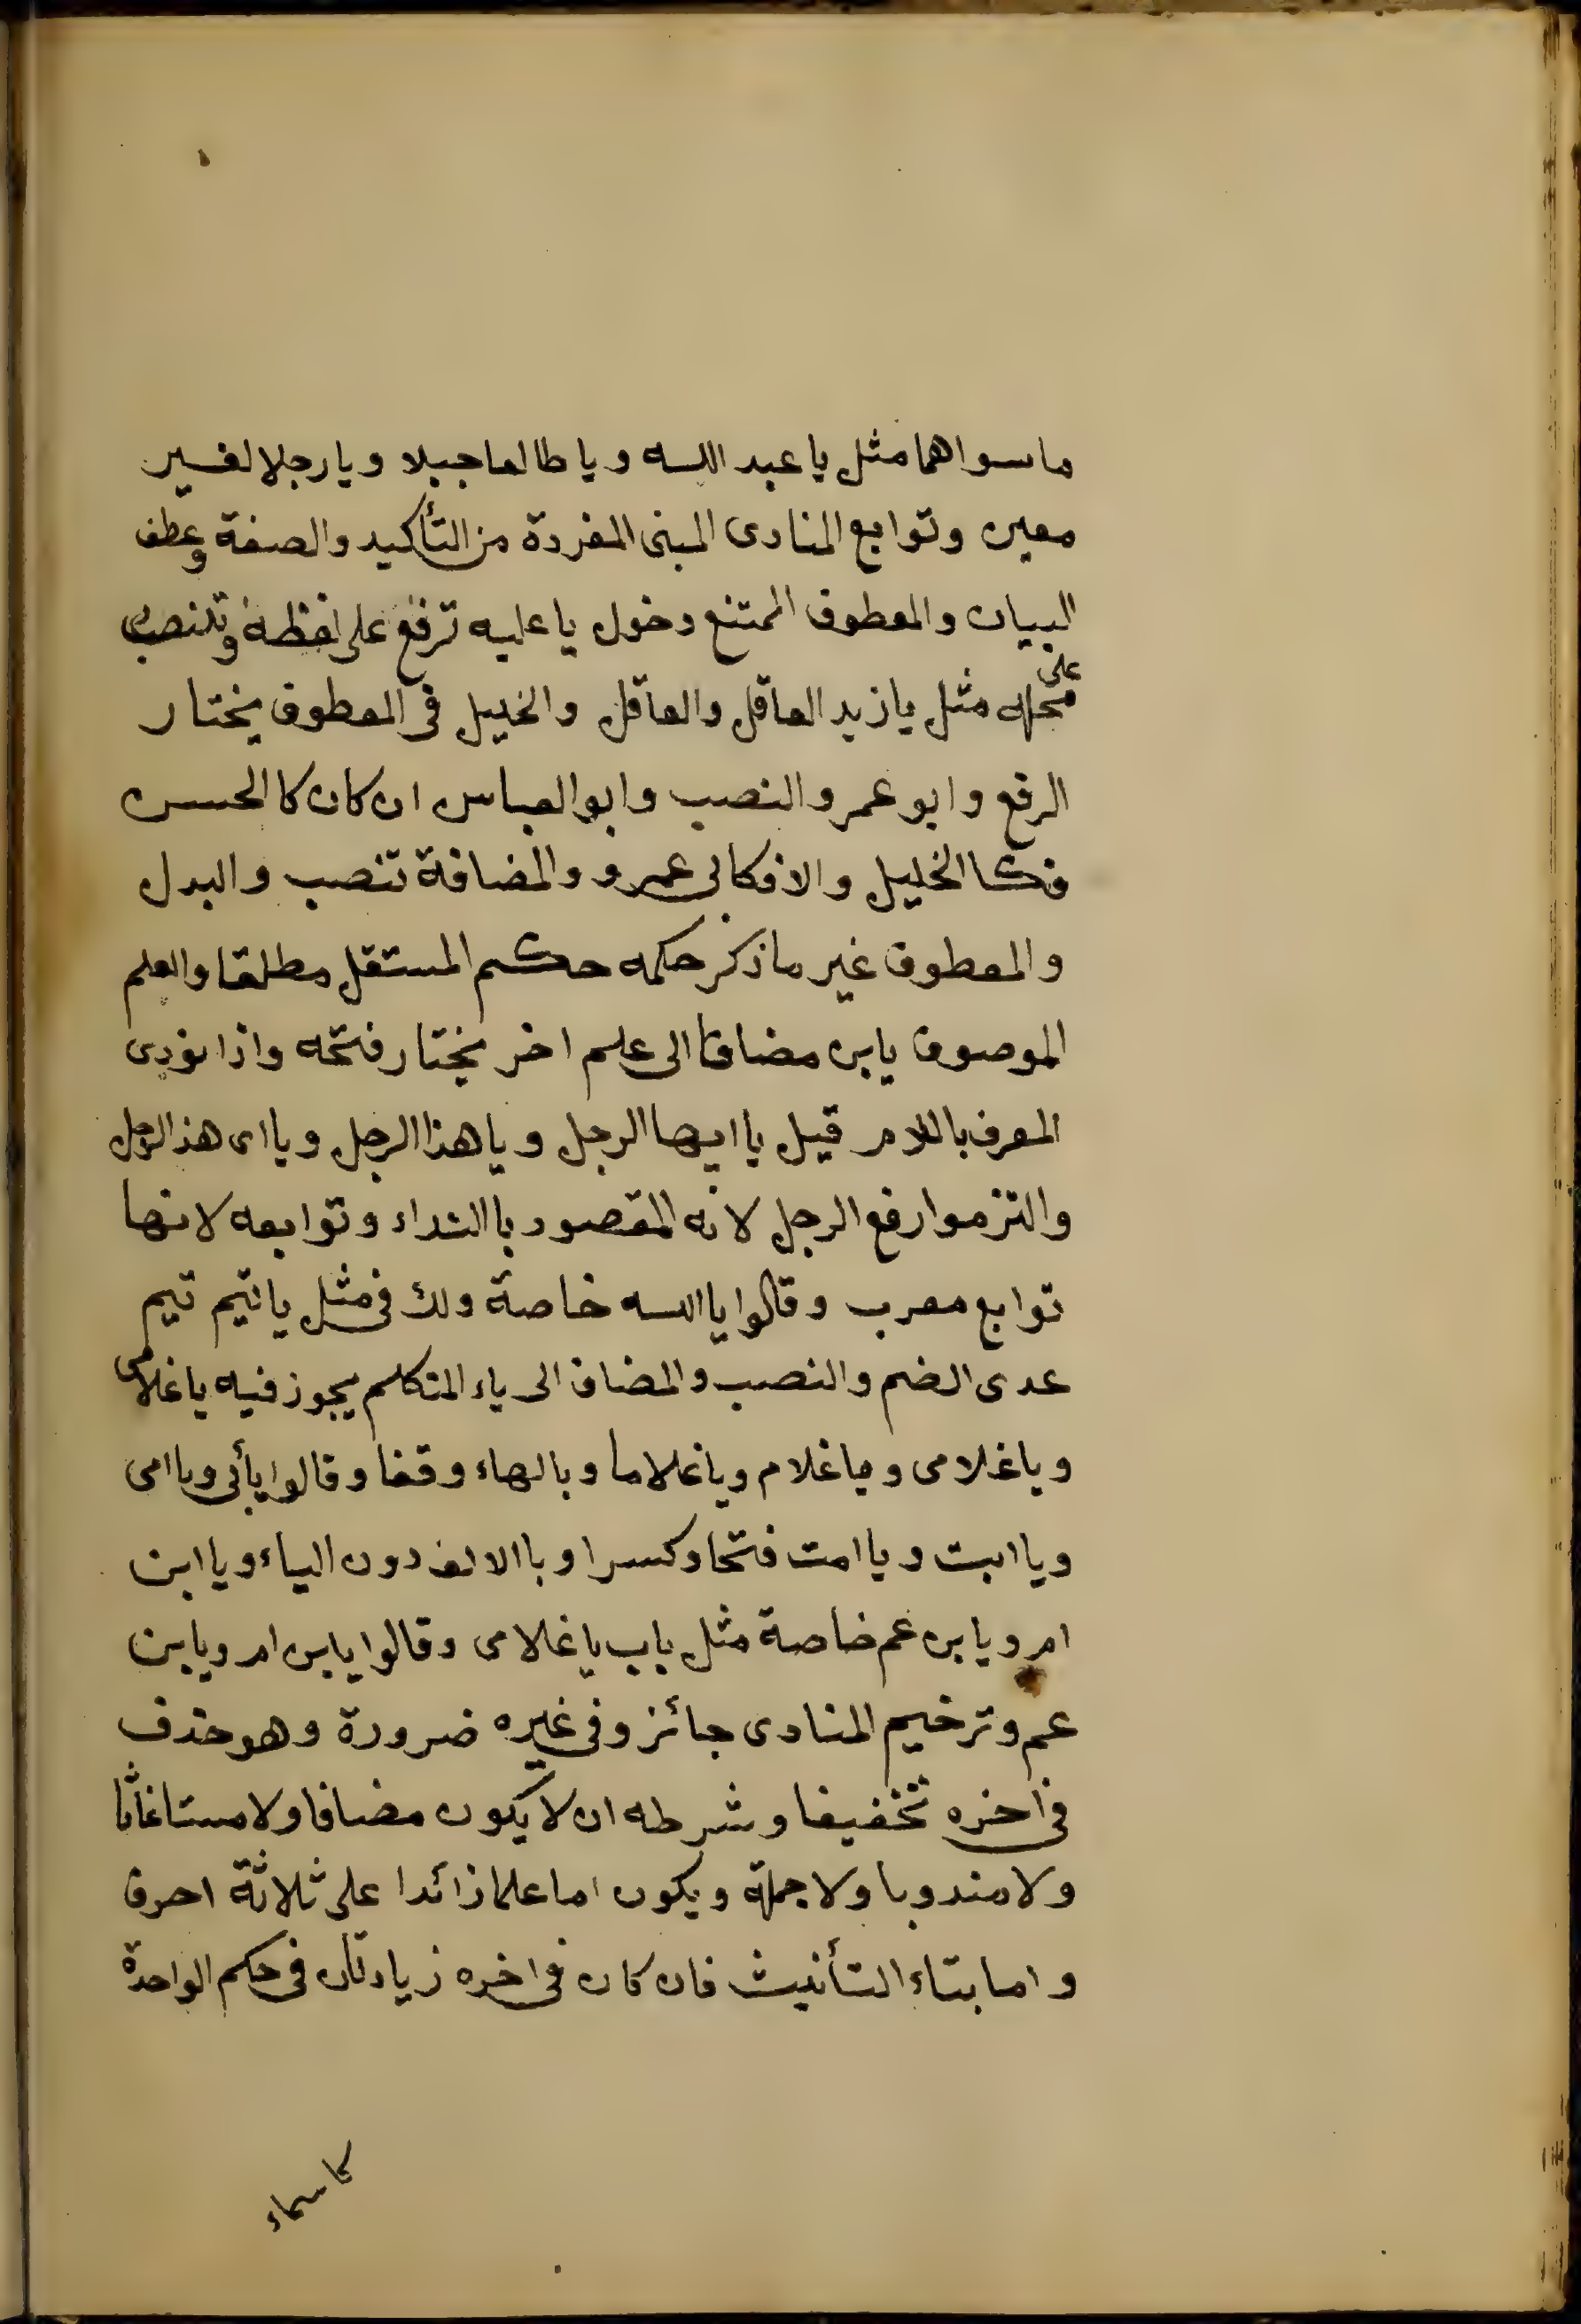 ماسواهما مثل يا عبد الله ويا طالعا جبلا ويا رجلا لغير
معين وتوابع المنادى المبنى المفردة من التأكيد والصفة وعطف
البيان والمعطوف الممتنع دخول يا عليه ترفع على لفظه وتنصب
على محله مثل يا زيد العاقل والعاقل والخليل فى المعطوف يختار
الرفع وابو عمر والنصب وابو العباس ان كان كا الحسن
فكا الخليل والا فكابى عمرو والمضافة تنصب والبدل
والمعطوف غير ما ذكر حكمه حكم المستقل مطلقا والعلم
الموصوف يابن مضافا الى علم اخر يختار فتحه واذا نودى
المعرف باللام قيل يا ايها الرجل ويا هذا الرجل ويا اى هذ الرجل
والتزموا رفع الرجل لانه المقصود با النداء وتوابعه لانها
توابع معرب وقالوا يا الله خاصة ولك فى مثل يا تيم تيم
عدى الضم والنصب والمضاف الى ياء المتكلم يجوز فيه يا غلامى
ويا غلامى ويا غلام ويا غلاما وبالهاء وقفا وقالوا يأبى ويا امى
ويا ابت ويا امت فتحا وكسرا وبا الالف دون الياء ويا ابن
ام ويا بن عم خاصة مثل باب يا غلامى وقالوا يابن ام ويابن
عم وترخيم المنادى جائز وفى غيره ضرورة وهو حذف
فى اخره تخفيفا وشرطه ان لا يكون مضافا ولا مستاغاثا
ولا مندوبا ولا جملة ويكون اما علما زائدا على ثلاثة احرف
واما بتاء التأنيث فان كان فى اخره زيادتان فى حكم الواحدة
كاسماء